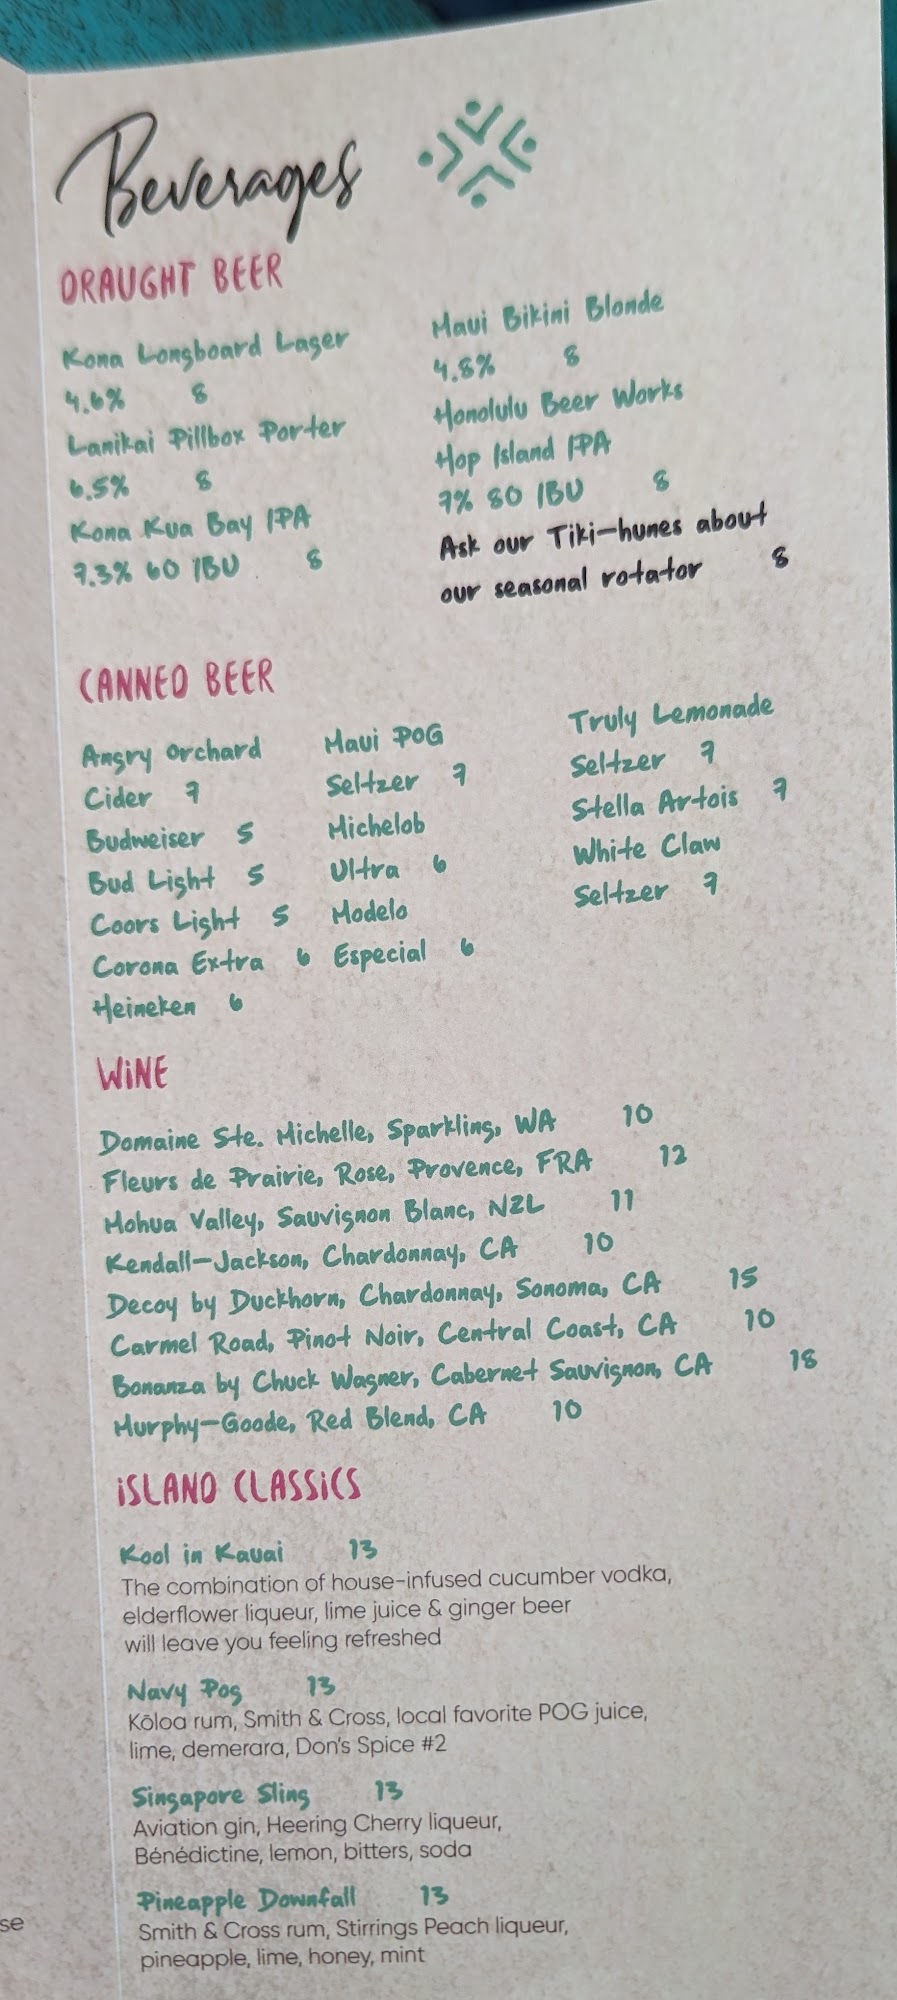 Beverages
DRAUGHT BEER
Kona Longboard Lager
4.6% 8
Lanikai Pillbox Porter
6.5% 8
Kona Kua Bay IPA
7.3% 60 IBU 8
Maui Bikini Blonde
4.8% 8
Honolulu Beer Works
Hop Island IPA
7% 80 IBU 8
Ask our Tiki-hunes about
our seasonal rotator 8
CANNED BEER
Angry Orchard
Cider 7
Budweiser 5
Bud Light 5
Coors Light 5
Corona Extra 6
Heineken 6
Maui POG
Seltzer 7
Michelob
Ultra 6
Modelo
Especial 6
Truly Lemonade
Seltzer 7
Stella Artois 7
White Claw
Seltzer 7
WiNE
Domaine Ste. Michelle, Sparkling, WA 10
Fleurs de Prairie, Rose, Provence, FRA 12
Mohua Valley, Sauvignon Blanc, NZL 11
Kendall-Jackson, Chardonnay, CA 10
Decoy by Duckhorn, Chardonnay, Sonoma, CA 15
Carmel Road, Pinot Noir, Central Coast, CA 10
Bonanza by Chuck Wagner, Cabernet Sauvignon, CA 18
Murphy-Goode, Red Blend, CA 10
iSLAND CLASSiCS
Kool in Kauai 13
The combination of house-infused cucumber vodka,
elderflower liqueur, lime juice & ginger beer
will leave you feeling refreshed
Navy Pog 13
Kōloa rum, Smith & Cross, local favorite POG juice,
lime, demerara, Don's Spice #2
Singapore Sling 13
Aviation gin, Heering Cherry liqueur,
Bénédictine, lemon, bitters, soda
Pineapple Downfall 13
Smith & Cross rum, Stirrings Peach liqueur,
pineapple, lime, honey, mint
se